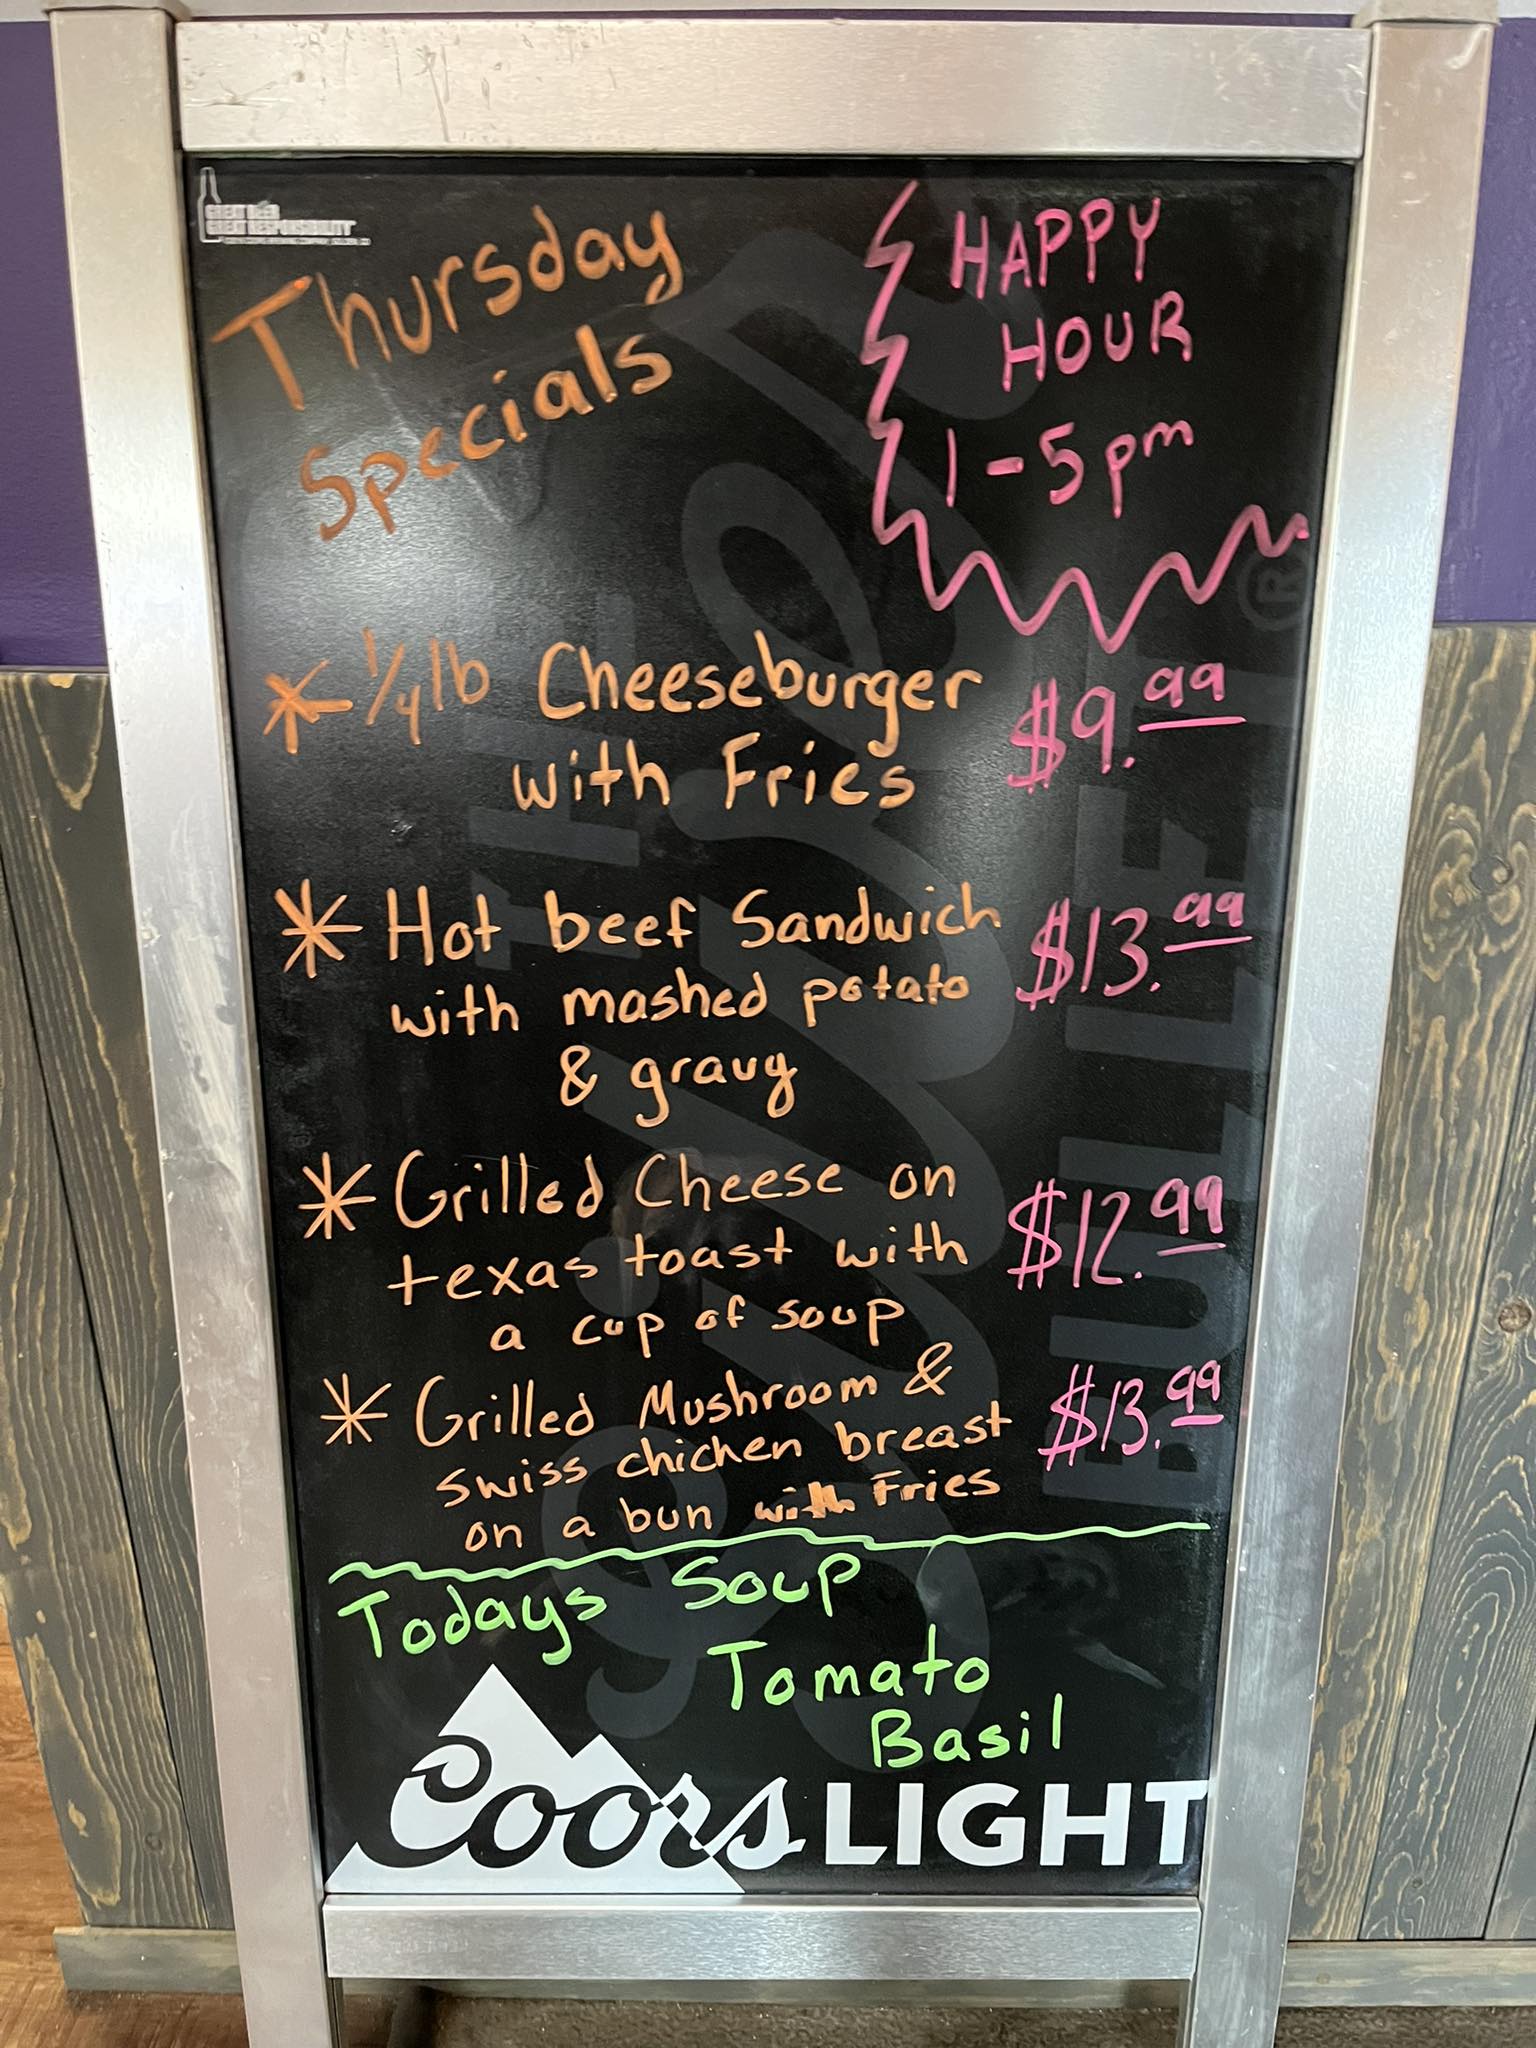 GREAT BEER
GREAT RESPONSIBILITY
Thursday
Specials
HAPPY
HOUR
1-5pm
* 1/4 lb Cheeseburger
with Fries
$9.99
* Hot beef Sandwich
with mashed potato
& gravy
$13.99
* Grilled Cheese on
texas toast with
a cup of soup
$12.99
* Grilled Mushroom &
swiss chicken breast
on a bun with Fries
$13.99
Todays Soup
Tomato
Basil
THE
Silver
BULLET®
Coors LIGHT